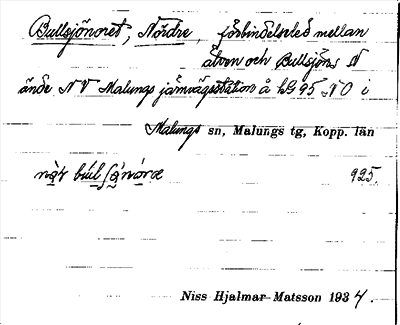 Bullsjönoret, Nördre, förbindelseled mellan
älven och Bullsjöns N
ände NV Malungs järnvägsstation å bl 95 NO i
Malungs sn, Malungs tg, Kopp. län
925.
Niss Hjalmar Matsson 1934.